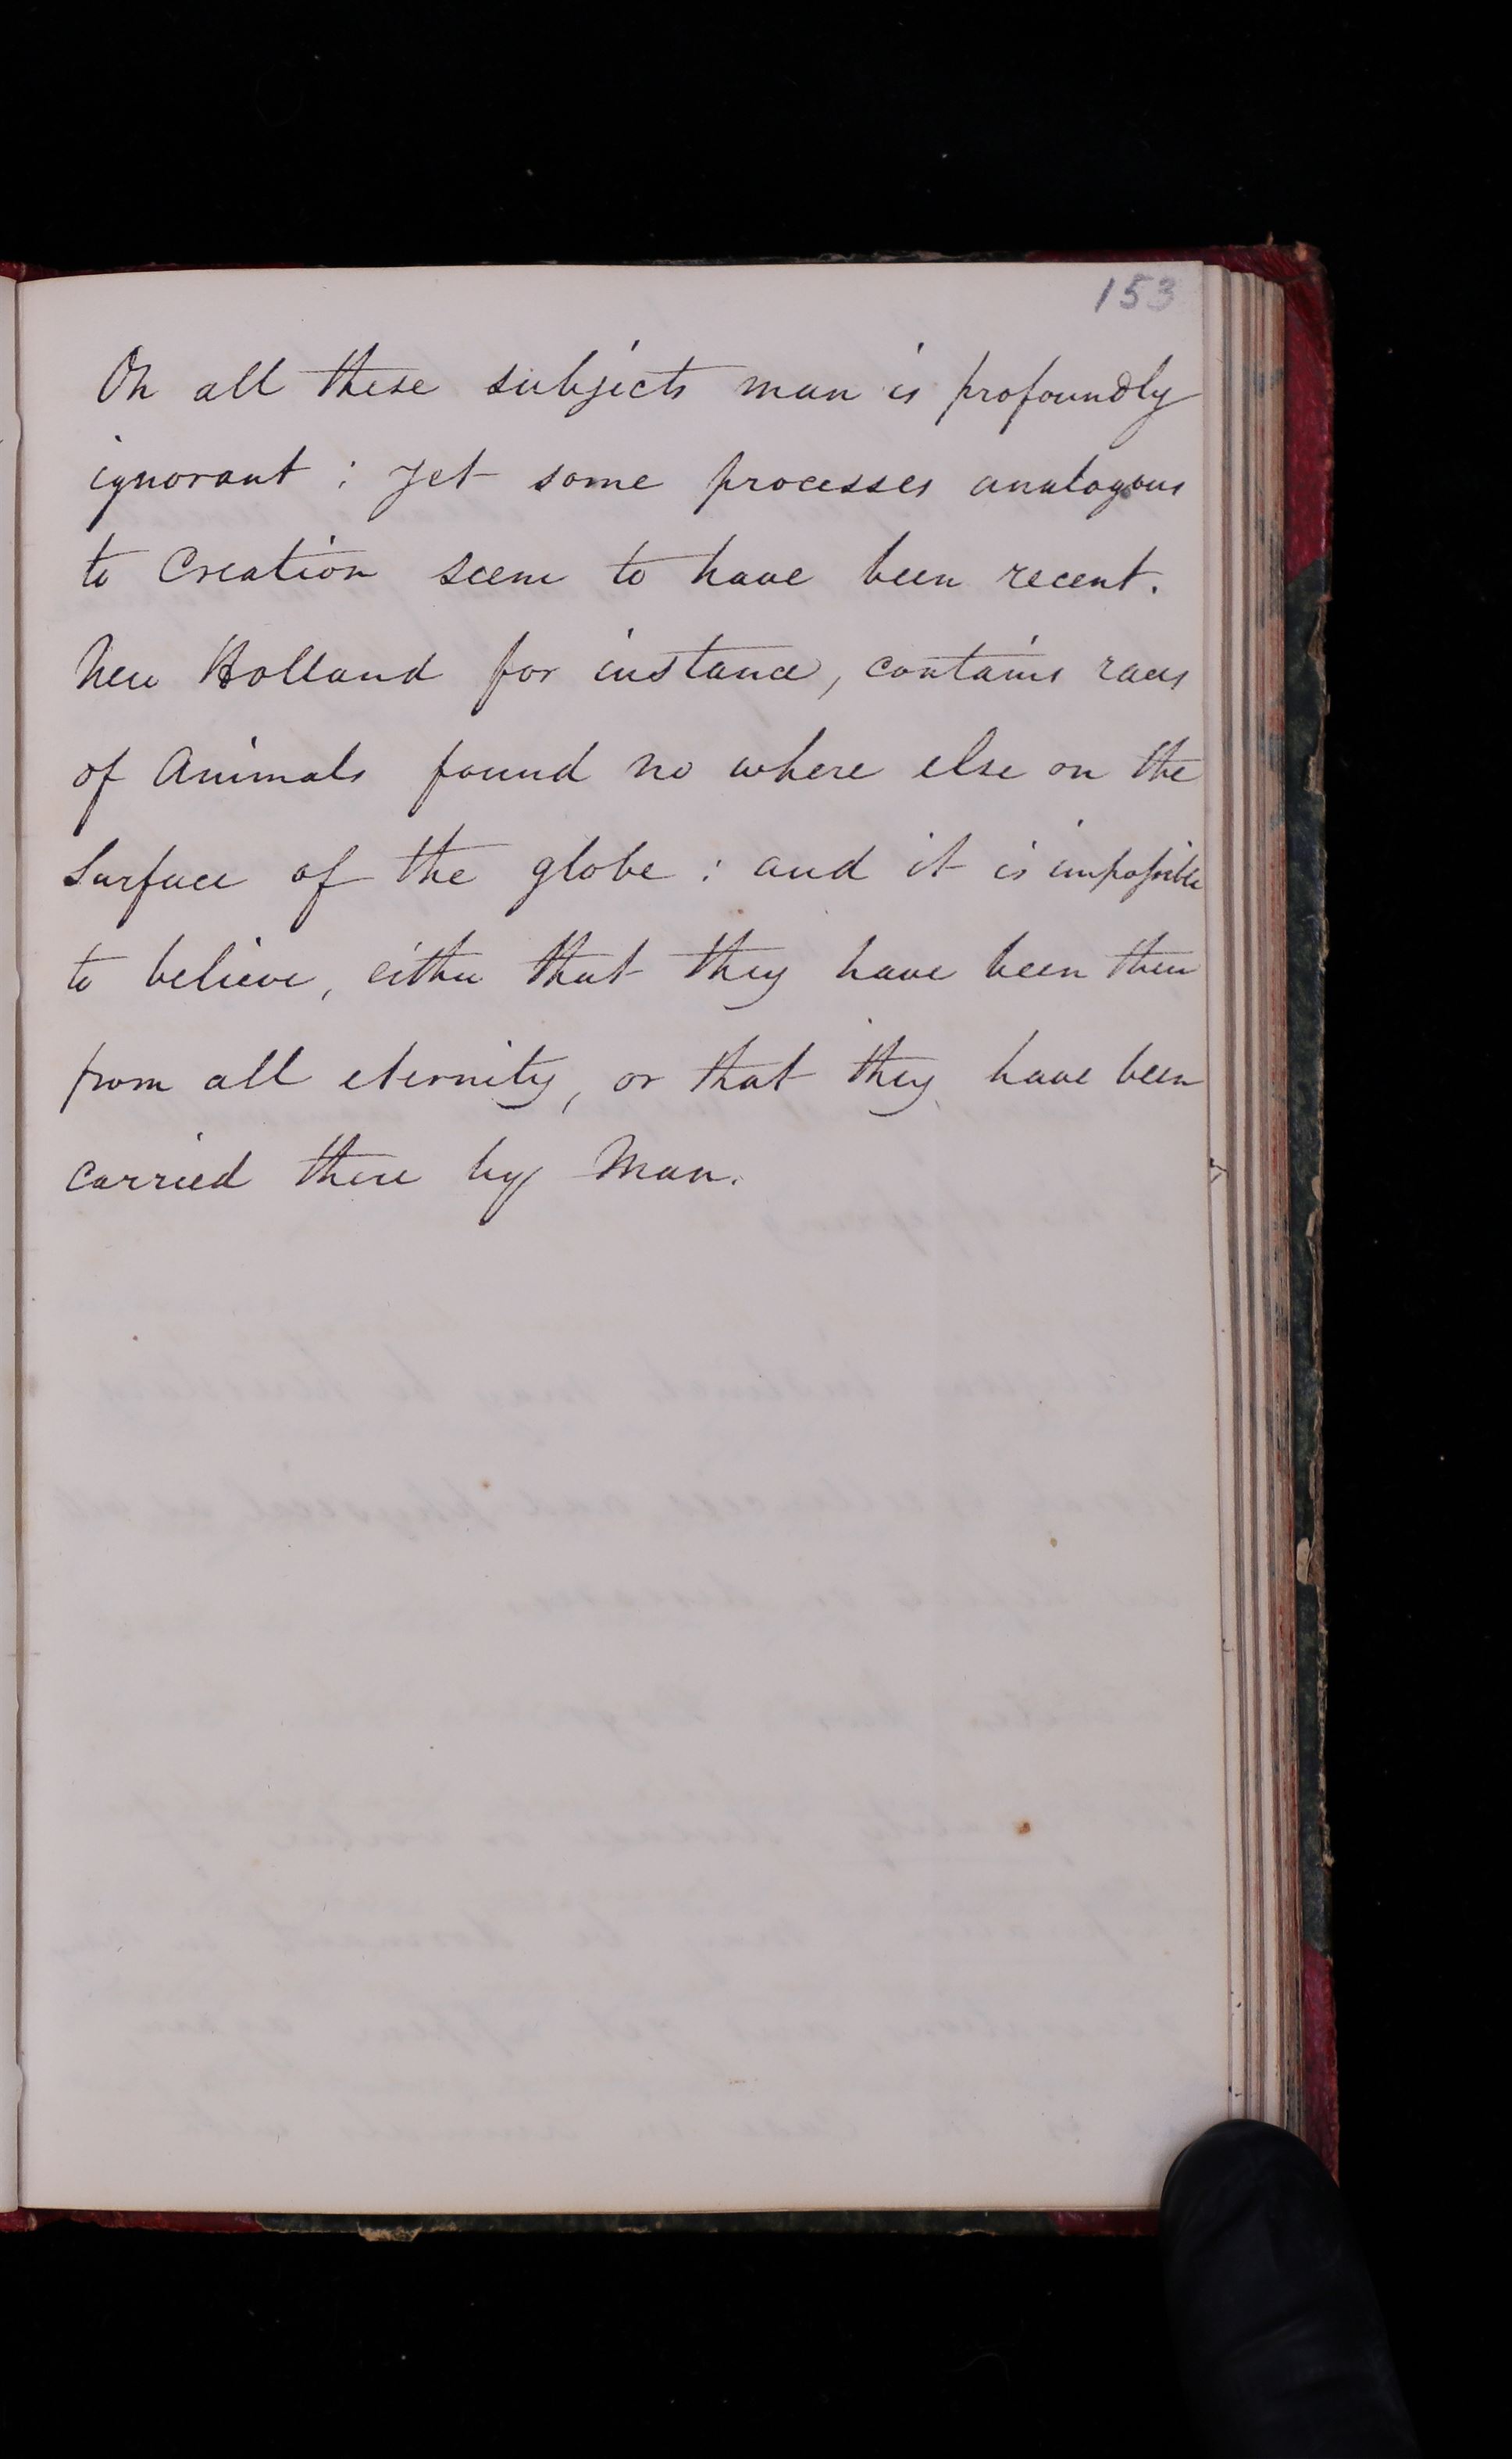 153
On all these subjects man is profoundly
ignorant : yet some processes analogous
to Creation seem to have been recent.
New Holland for instance, contains races
of Animals found no where else on the
Surface of the globe : and it is impossible
to believe, either that they have been there
from all eternity, or that they have been
carried there by Man.